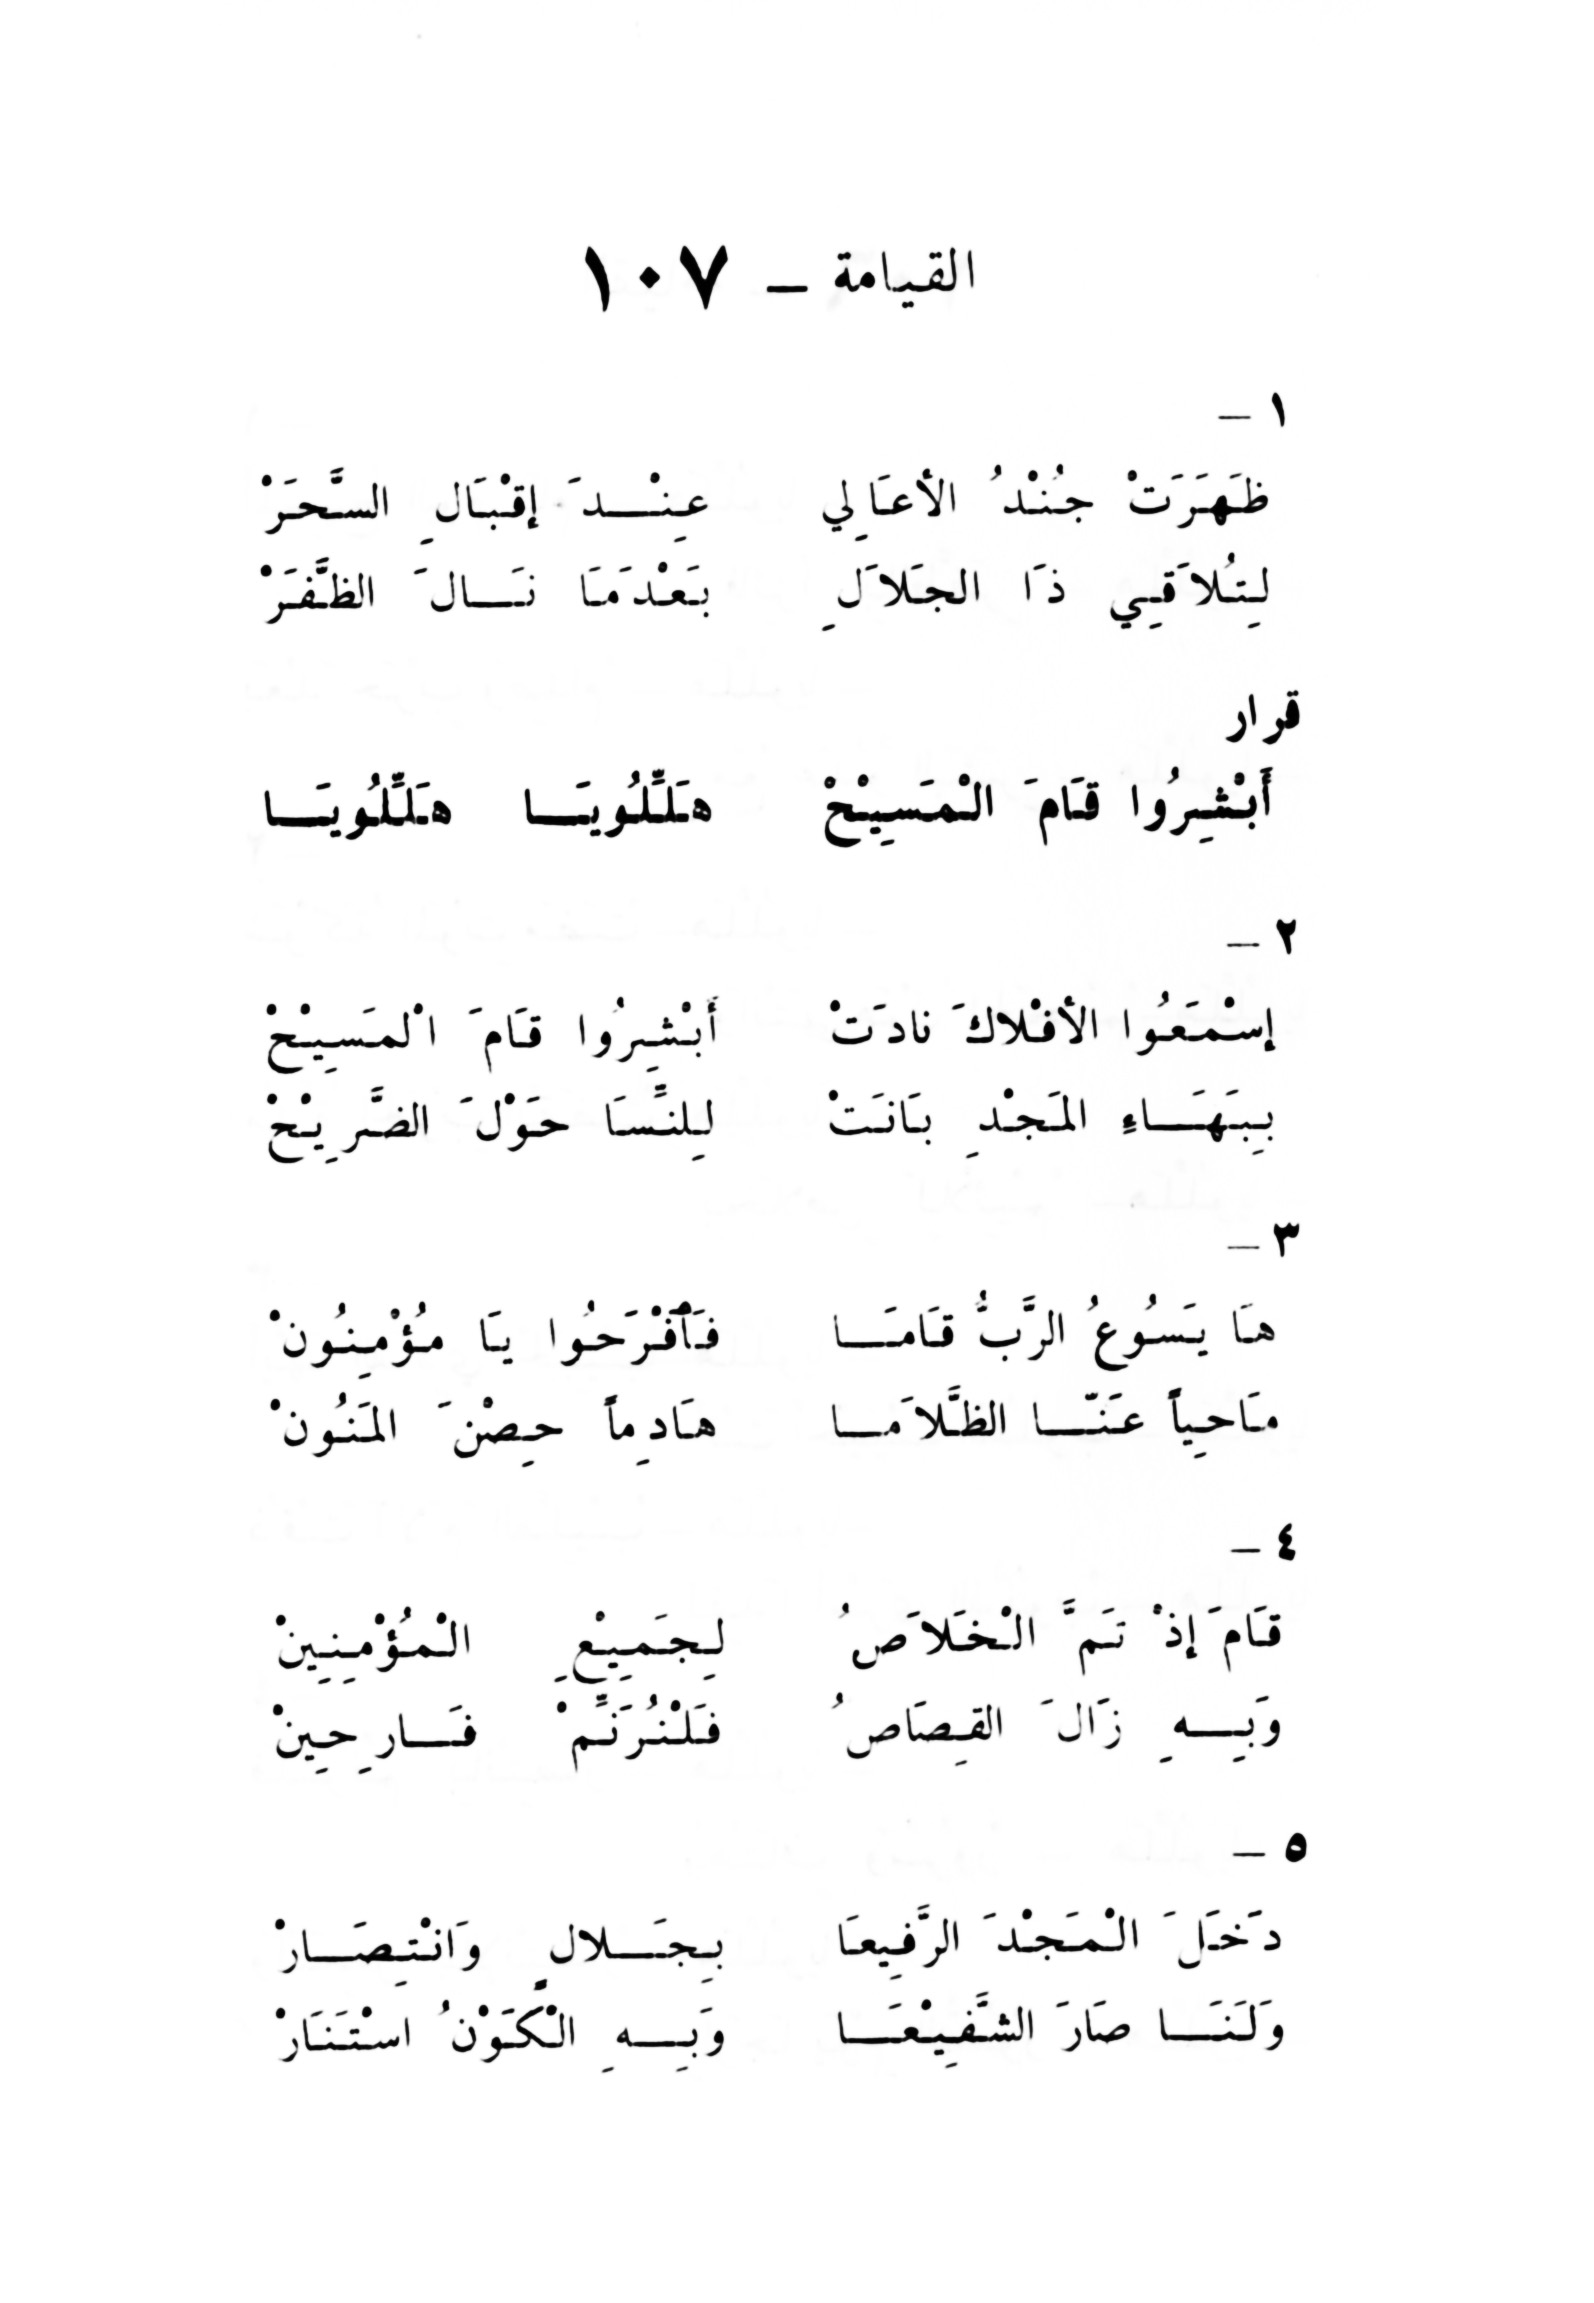 القيامة – ١٠٧
١ –
ظَهَرَتْ جُنْدُ الأعَالِي عِنْدَ إقْبَالِ السَّحَرْ
لِتُلاَقِي ذَا الجَلاَلِ بَعْدَمَا نَالَ الظَّفَرْ
قرار
أَبْشِرُوا قَامَ الْمَسِيْحْ هَلِّلُويَا هَلِّلُويَا
٢ –
إسْمَعُوا الأفْلاكَ نادَتْ أَبْشِرُوا قَامَ الْمَسِيْحْ
بِبَهَاءِ المَجْدِ بَانَتْ لِلنِّسَا حَوْلَ الضَّرِيْحْ
٣ –
هَا يَسُوعُ الرَّبُّ قَامَا فَٱفْرَحُوا يَا مُؤْمِنُونْ
مَاحِياً عَنّا الظَّلاَما هَادِماً حِصْنَ المَنُونْ
٤ –
قَامَ إذْ تَمَّ الْخَلاَصُ لِجَمِيْعِ الْمُؤْمِنِينْ
وَبِهِ زَالَ القِصَاصُ فَلْنُرَنِّمْ فَارِحِينْ
٥ –
دَخَلَ الْمَجْدَ الرَّفِيعَا بِجَلالٍ وَانْتِصَارْ
وَلَنَا صَارَ الشَّفِيْعَا وَبِهِ الْكَوْنُ اسْتَنَارْ